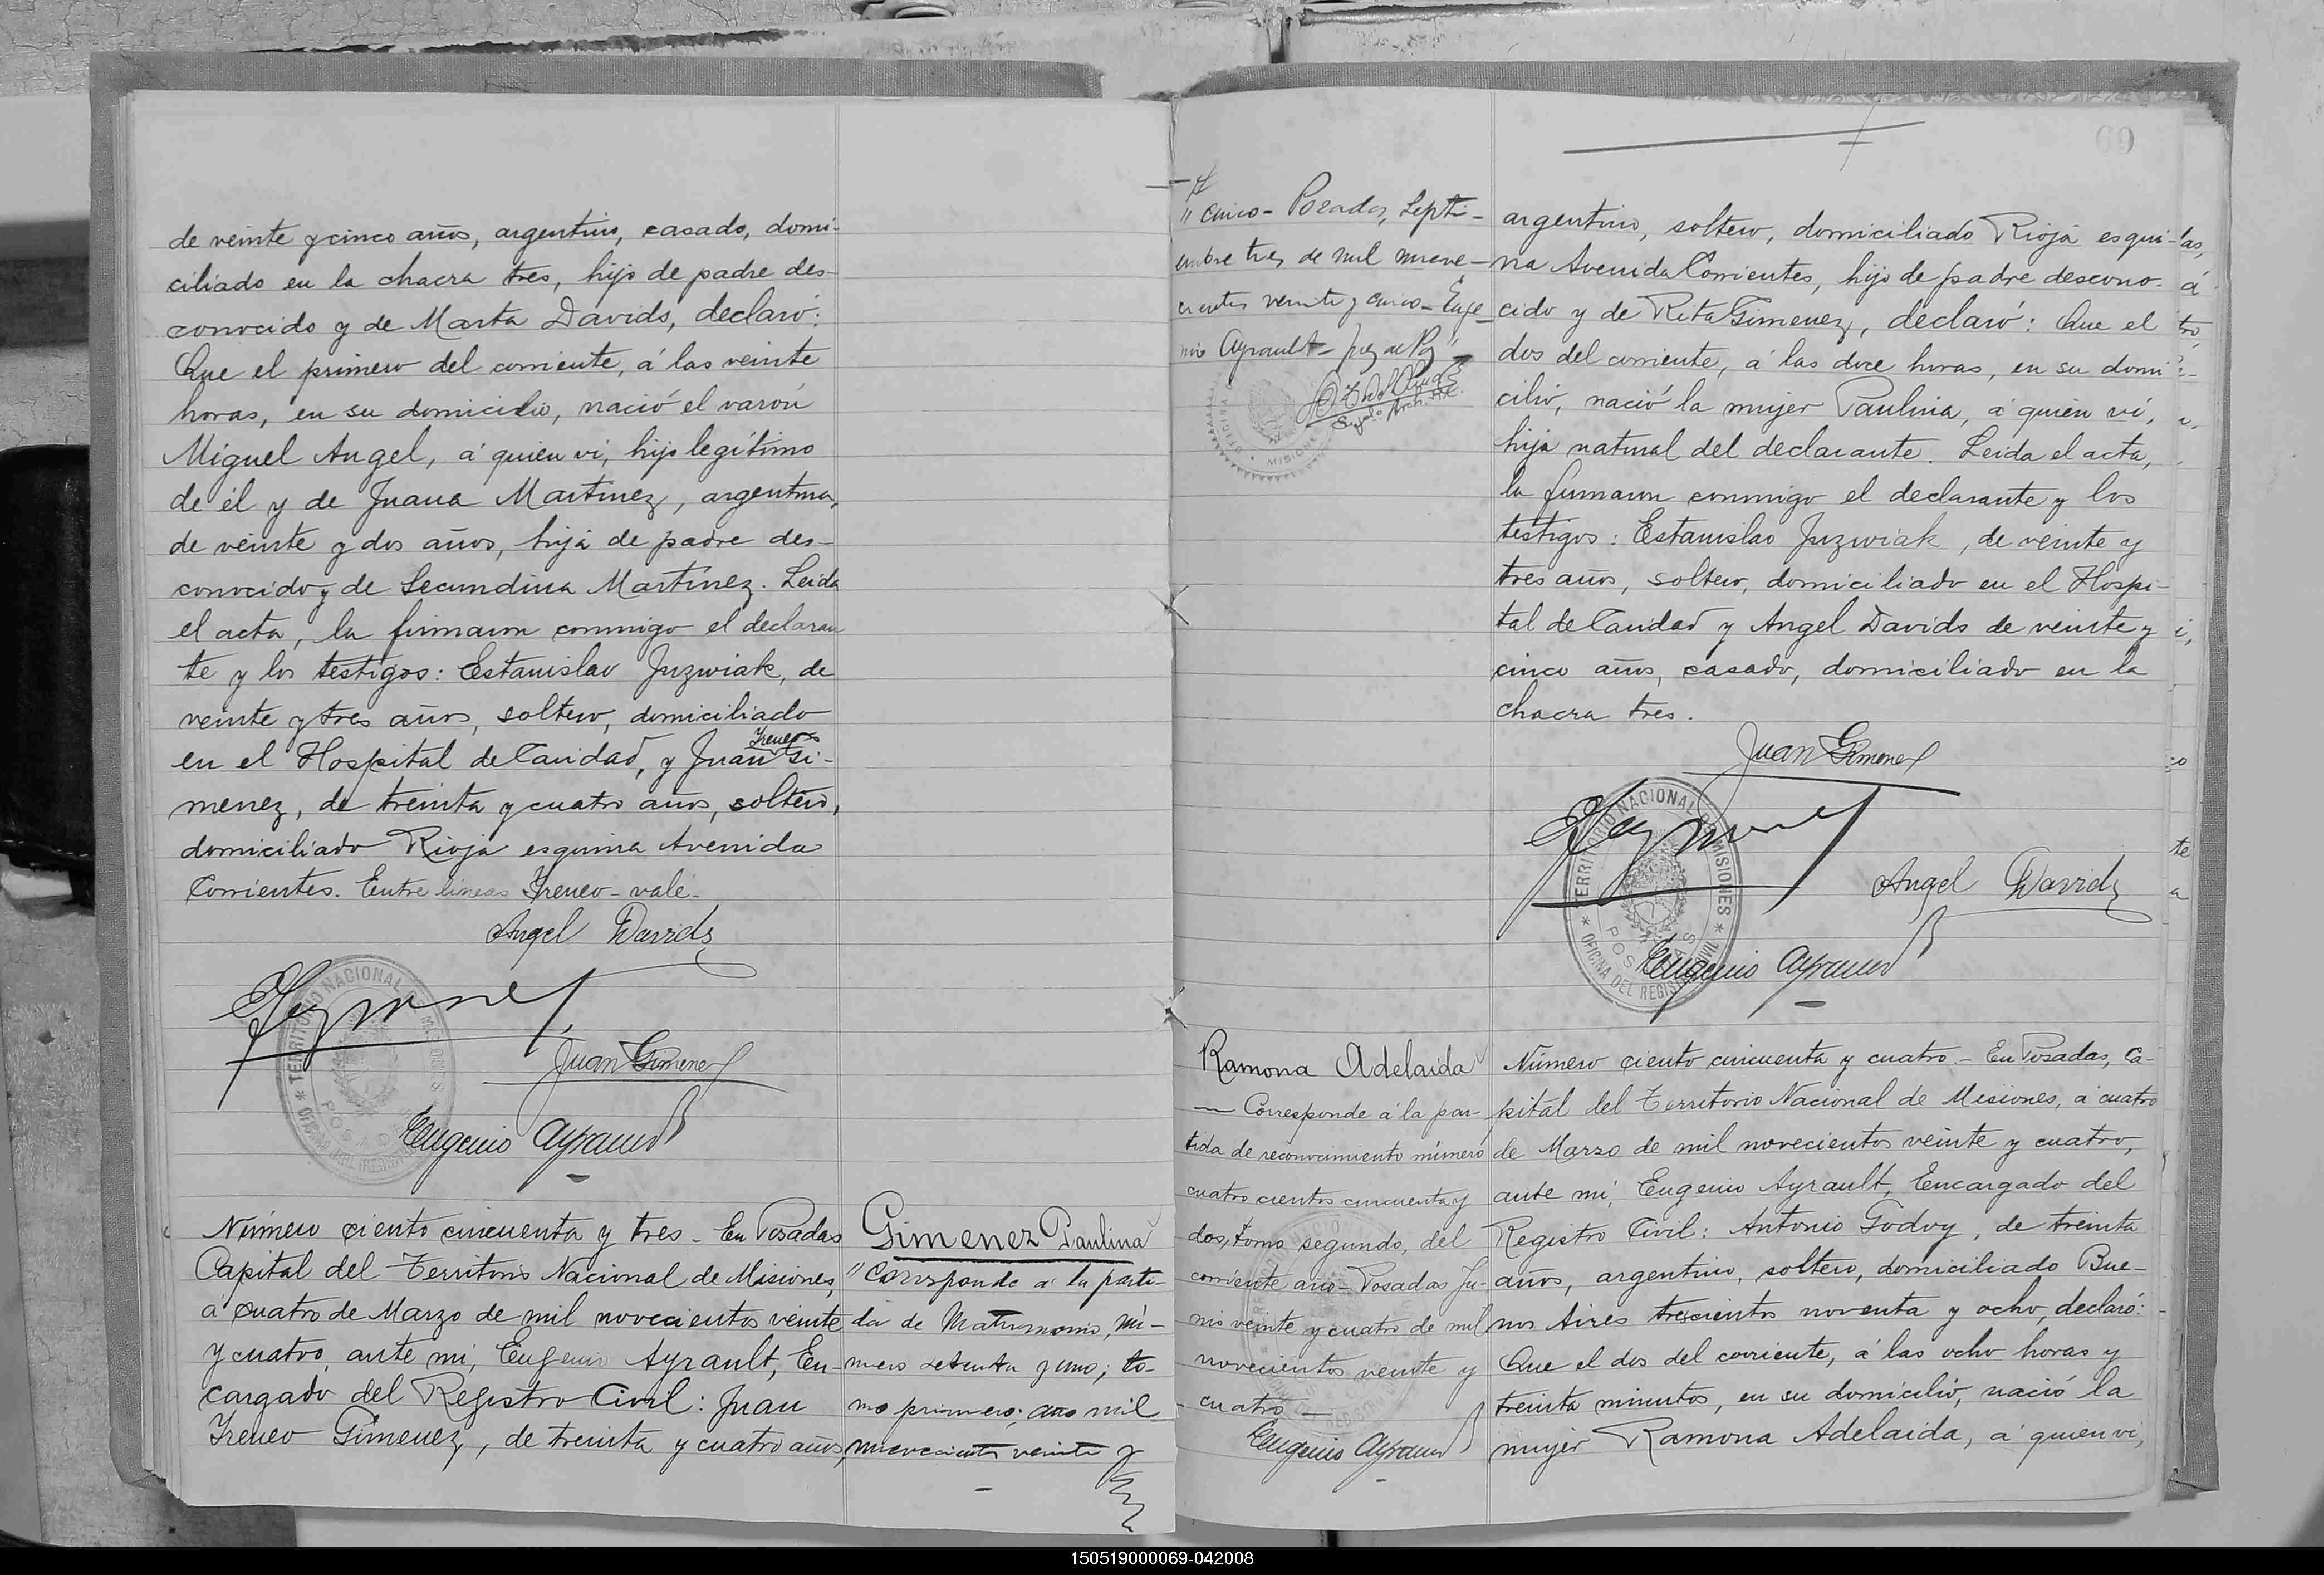 de veinte y cinco años, argentino, casado, domi-
ciliado en la chacra tres, hijo de padre des-
conocido y de Marta Davids, declaró:
Que el primero del corriente, á las veinte
horas, en su domicilio, nació el varón
Miguel Angel, á quien vi, hijo legítimo
de él y de Juana Martinez, argentina,
de veinte y dos años, hija de padre des-
conocido y de Secundina Martínez. Leida
el acta, la firmaron conmigo el declaran
te y los testigos: Estanislao Juzwiak, de
veinte y tres años, soltero, domiciliado
Ireneo
en el Hospital de Caridad, y Juan Gi-
menez, de treinta y cuatro años, soltero,
domiciliado Rioja esquina Avenida
Corrientes. Entre lineas Ireneo - vale.
Angel Davids
Juan Gimenez
Eugenio Ayrault
Número ciento cincuenta y tres - En Posadas
Capital del Territorio Nacional de Misiones,
á cuatro de Marzo de mil novecientos veinte
y cuatro, ante mi, Eugenio Ayrault, En-
cargado del Registro Civil: Juan
Ireneo Gimenez, de treinta y cuatro años,
Gimenez Paulina
"Corresponde a la parti-
da de Matrimonio, nú-
mero setenta y uno; to-
mo primero; año mil
novecientos veinte y
"cinco - Posadas, Septi-
embre tres de mil nueve-
cientos veinte y cinco - Euge-
nio Ayrault - Juez de Paz"
69
argentino, soltero, domiciliado Rioja esqui-
na Avenida Corrientes, hijo de padre descono-
cido y de Rita Gimenez, declaró: Que el
dos del corriente, á las doce horas, en su domi
cilio, nació la mujer Paulina, á quien vi,
hija natural del declarante. Leida el acta,
la firmaron conmigo el declarante y los
testigos: Estanislao Juzwiak, de veinte y
tres años, soltero, domiciliado en el Hospi-
tal de Caridad y Angel Davids de veinte y
cinco años, casado, domiciliado en la
chacra tres.
Juan Gimenez
TERRITORIO NACIONAL DE MISIONES
POSADAS
OFICINA DEL REGISTRO CIVIL
Angel Davids
Eugenio Ayrault
Ramona Adelaida
Corresponde á la par-
tida de reconocimiento número
cuatro cientos cincuenta y
dos, tomo segundo, del
corriente año - Posadas Ju-
nio veinte y cuatro de mil
novecientos veinte y
cuatro
Eugenio Ayrault
Número ciento cincuenta y cuatro. - En Posadas, Ca-
pital del Territorio Nacional de Misiones, á cuatro
de Marzo de mil novecientos veinte y cuatro,
ante mi, Eugenio Ayrault, Encargado del
Registro Civil: Antonio Godoy, de treinta
años, argentino, soltero, domiciliado Bue-
nos Aires trescientos noventa y ocho, declaró:
Que el dos del corriente, á las ocho horas y
treinta minutos, en su domicilio, nació la
mujer Ramona Adelaida, á quien vi,
150519000069-042008